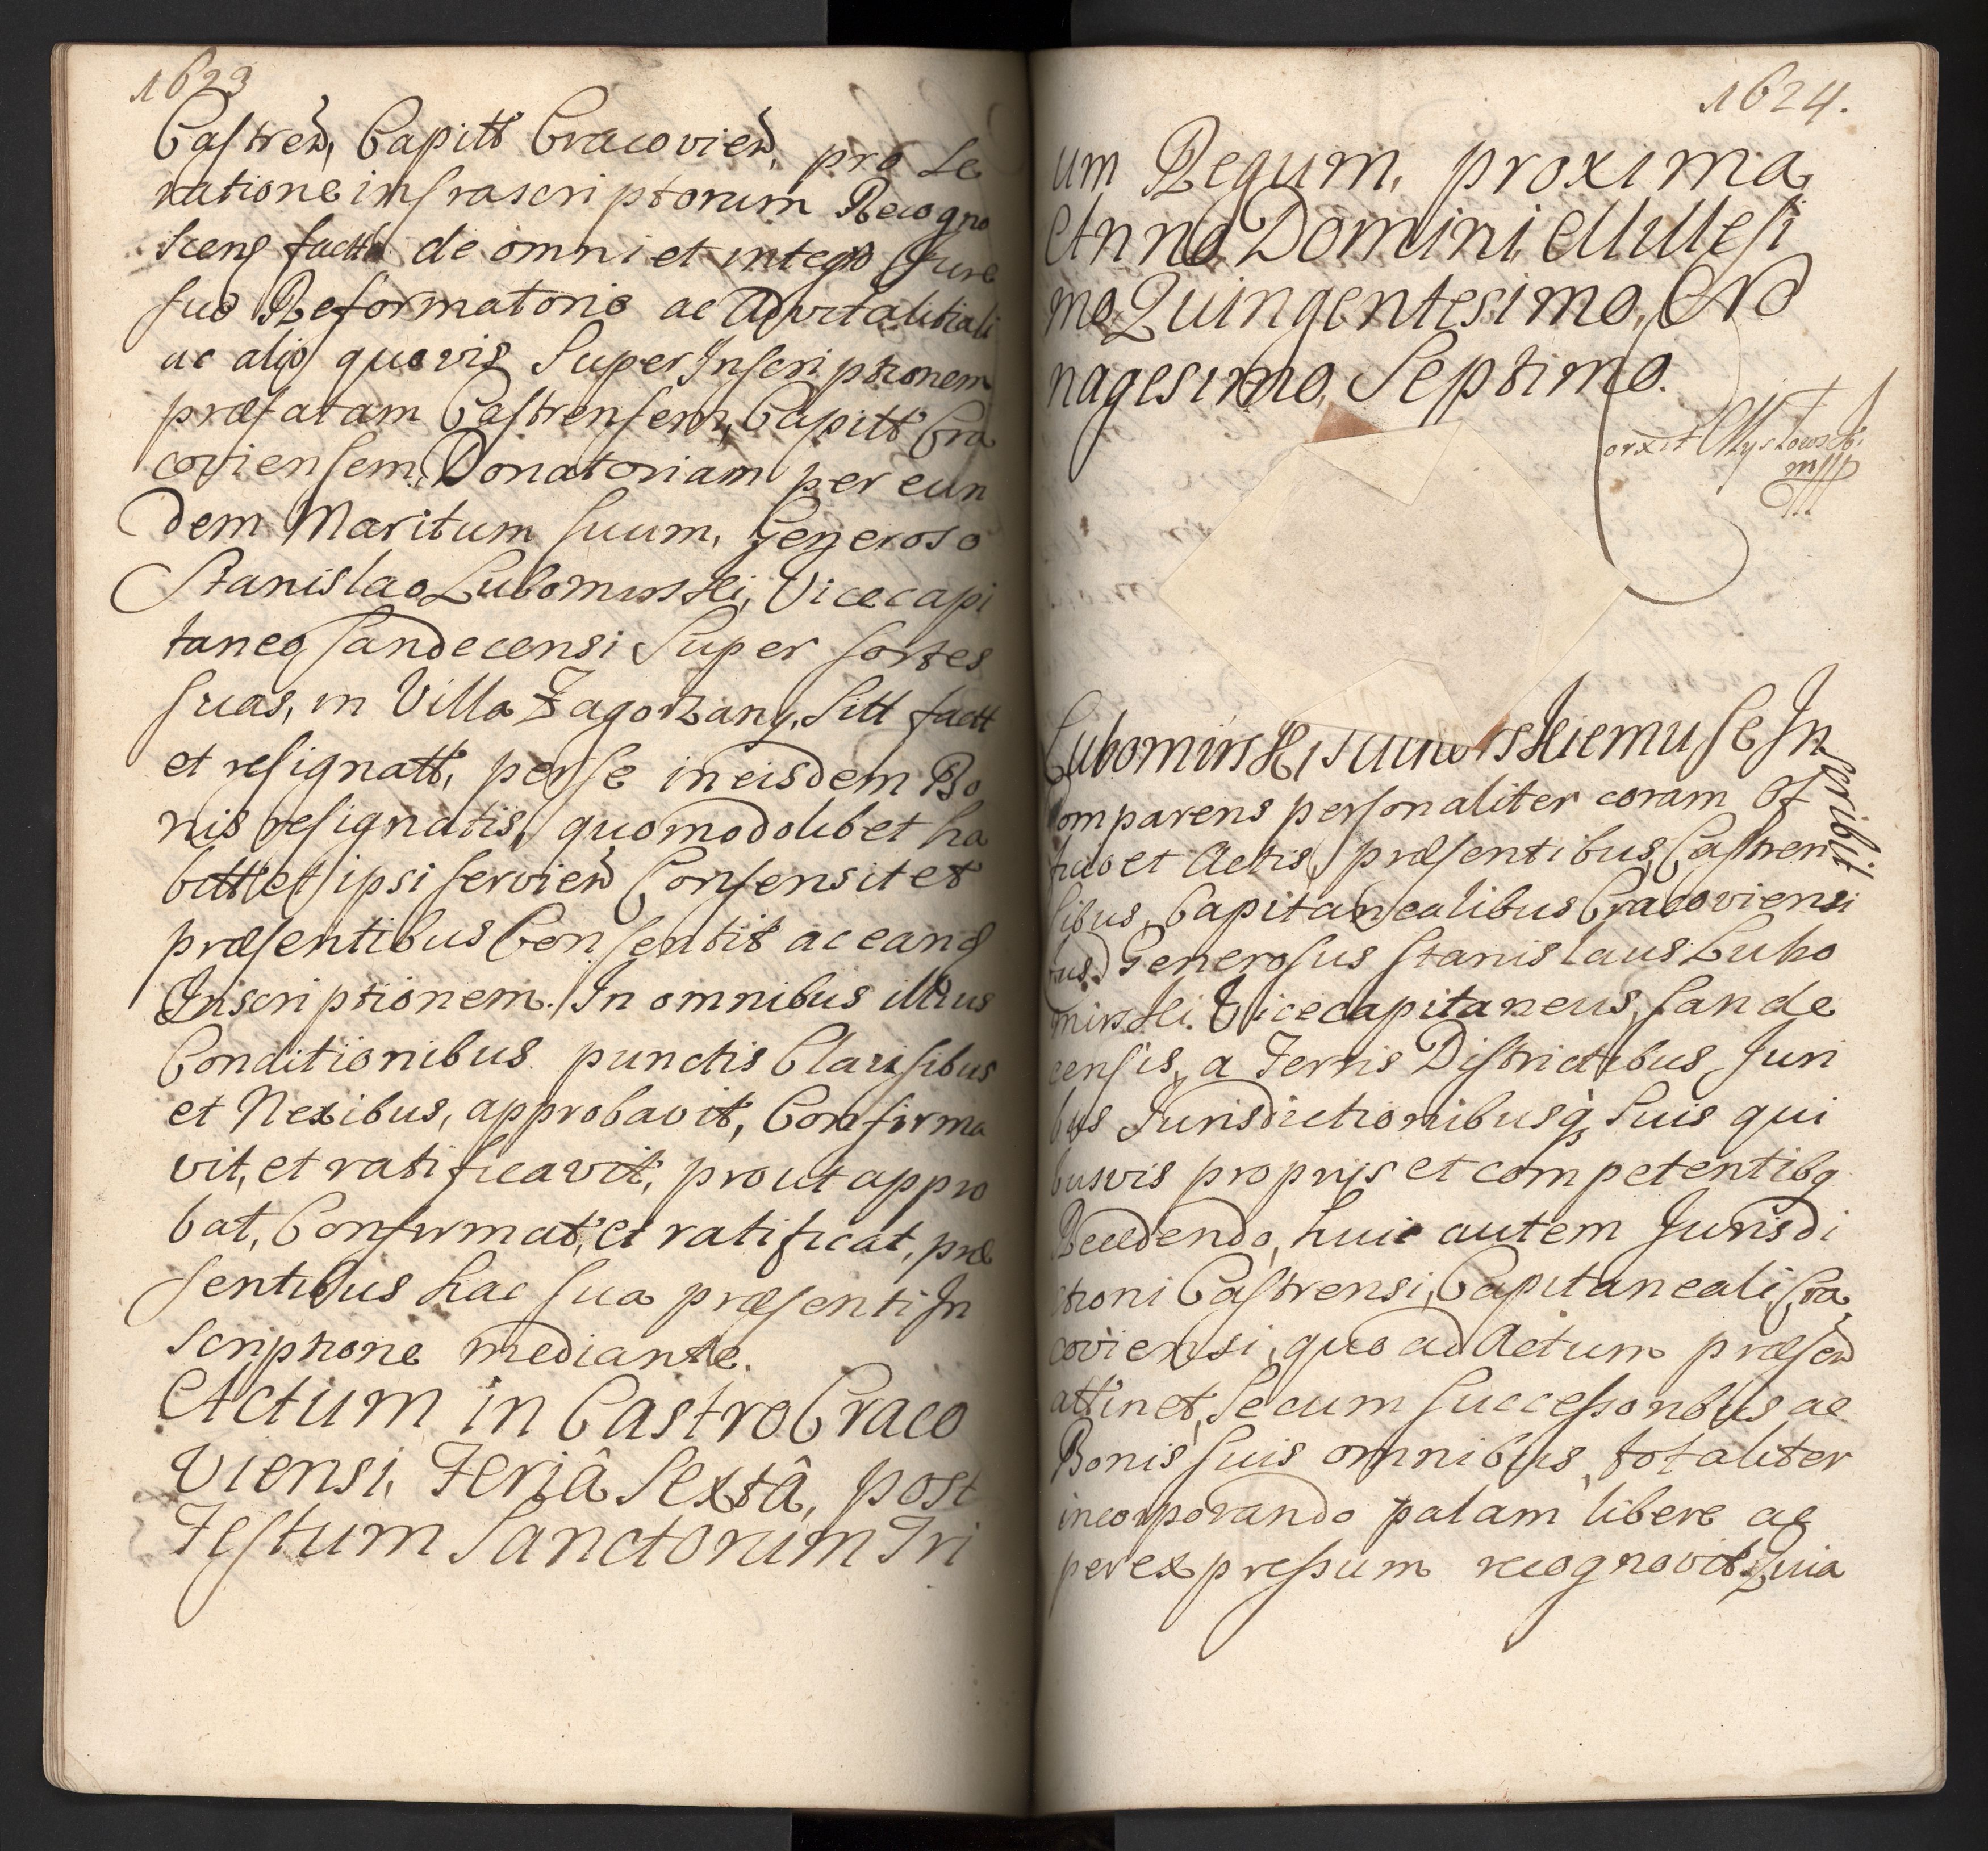 1623
Castren, Capitt Cracovien, pro Se
ratione infrascriptorum Recogno
scens factt de omni et integro Jure
suo Reformatorio ac Advitalitiali
ac alio quovis Super Inscriptionem
præfatam Castrensem, Capitt Cra
coviensem, Donatoriam per eun
dem Maritum suum, Generoso
Stanislao Lubomirski, Vicecapi
taneo Sandecensi Super sortes
suas, in Villa Zagorzany, Sitt factt
et resignatt, per se in eisdem Bo
nis resignatis, quomodolibet ha
bitt et ipsi servien Consensit et
præsentibus Consentit ac eand
Inscriptionem. In omnibus illius
Conditionibus punctis Clausibus
et Nexibus, approbavit, Confirma
vit, et ratificavit, prout appro
bat, Confirmat, et ratificat, præ
sentibus hac sua præsenti In
scriptione mediante.
Actum in Castro Craco
viensi, Feriâ Sextâ, post
Festum Sanctorum Tri
1624.
um Regum, proxima,
Anno Domini, Millesi
mo Quingentesimo, No
nagesimo, Septimo.
Myskowski
mpp
Lubomirski se In
scribit
Comparens personaliter coram Of
ficio et Actis, præsentibus, Castren
sibus, Capitanealibus Cracoviensi
bus Generosus Stanislaus Lubo
mirski. Vicecapitaneus, Sande
censis, a Terris Districtibus Juri
bus Jurisdictionibusq Suis qui
busvis proprijs et competentibq
Recedendo, huic autem Jurisdi
ctioni Castrensi, Capitaneali Cra
coviensi, quo ad Actum præsen
attinet, Se cum successoribus ac
Bonis suis omnibus, totaliter
incorporando palam libere ac
per expressum recognovit. Quia